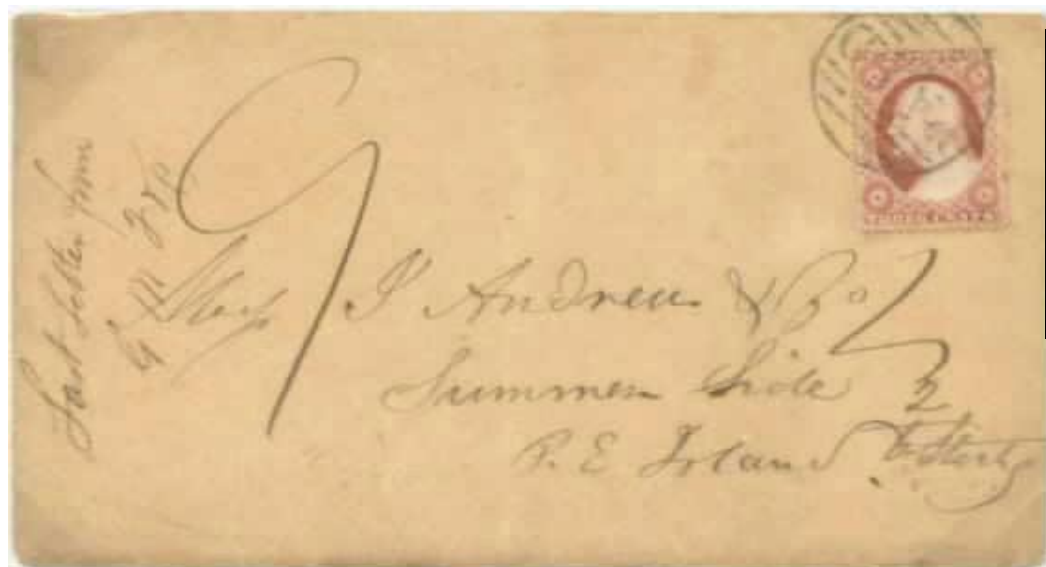 Last Letter from
9
I Andrew & Bo
Summer Side
P. E. Island
2
THREE CENTS